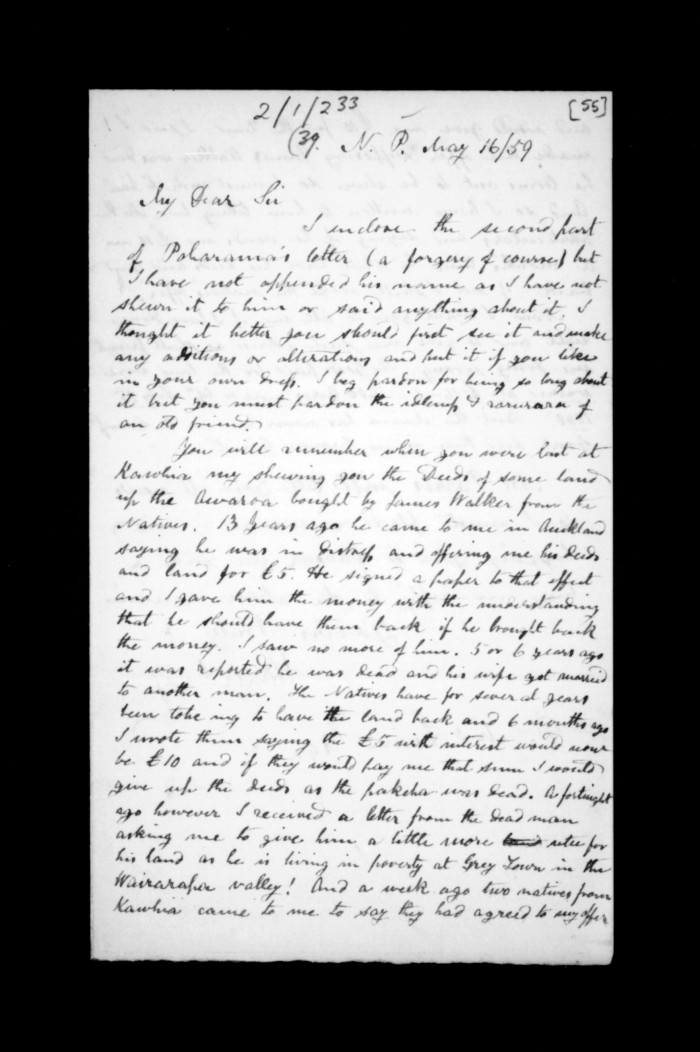 2/1/2 33
[55]
(39. N. P. May 16/59
My Dear Sir
I enclose the second part
of Poharama's letter (a forgery of course) but
I have not appended his name as I have not
shewn it to him or said anything about it. I
thought it better you should first see it and make
any additions or alterations and put it if you like
in your own dress. I beg pardon for being so long about
it but you must pardon the idleness & of
an old friend.
You will remember when you were last at
Kawhia my shewing you the Deeds of some land
up the Awaroa bought by James Walker from the
Natives. 13 Years ago he came to me in Auckland
saying he was in distress and offering me his deeds
and land for £5. He signed a paper to that effect
and I gave him the money with the understanding
that he should have them back if he brought back
the money. I saw no more of him. 5 or 6 years ago
it was reported he was dead and his wife got married
to another man. The Natives have for several years
been toheing to have the land back and 6 months ago
I wrote them saying the £5 with interest would now
be £10 and if they would pay me that sum I would
give up the deeds as the pakeha was dead. A fortnight
ago however I received a letter from the dead man
asking me to give him a little more utu for
his land as he is living in poverty at Grey Town in the
Wairarapa valley! And a week ago two natives from
Kawhia came to me to say they had agreed to my offer